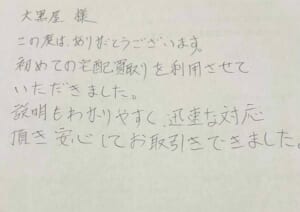 大黒屋 様
この度は、ありがとうございます。
初めての宅配買取りを利用させて
いただきました。
説明もわかりやすく、迅速な対応
頂き安心してお取引きできました。